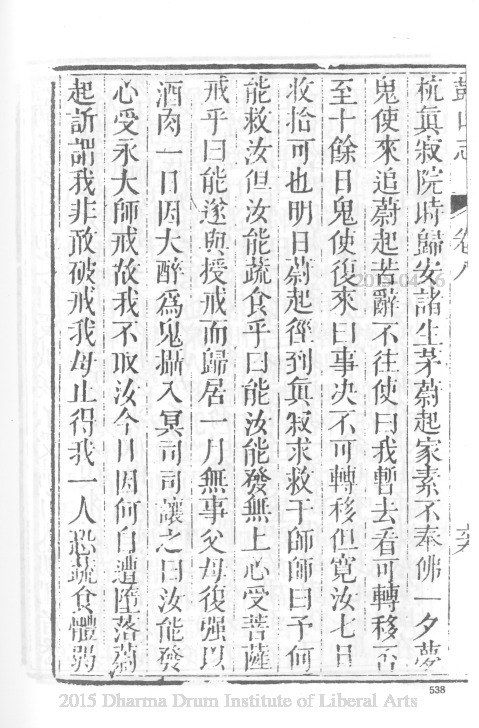 鼓山志 卷八
杭真寂院時歸安諸生茅蔚起家素不奉佛一夕夢
鬼使來追蔚起苦辭不往使曰我暫去看可轉移否
至十餘日鬼使復來曰事决不可轉移但寬汝七日
收拾可也明日蔚起徑到真寂求救于師師曰予何
能救汝但汝能蔬食乎曰能汝能發無上心受菩薩
戒乎曰能遂與授戒而歸居一月無事父母復强以
酒肉一日因大醉為鬼攝入冥司司讓之曰汝能發
心受永大師戒故我不取汝今日因何自遭墮落蔚
起訴謂我非敢破戒我母止得我一人恐蔬食體弱
538
2015 Dharma Drum Institute of Liberal Arts